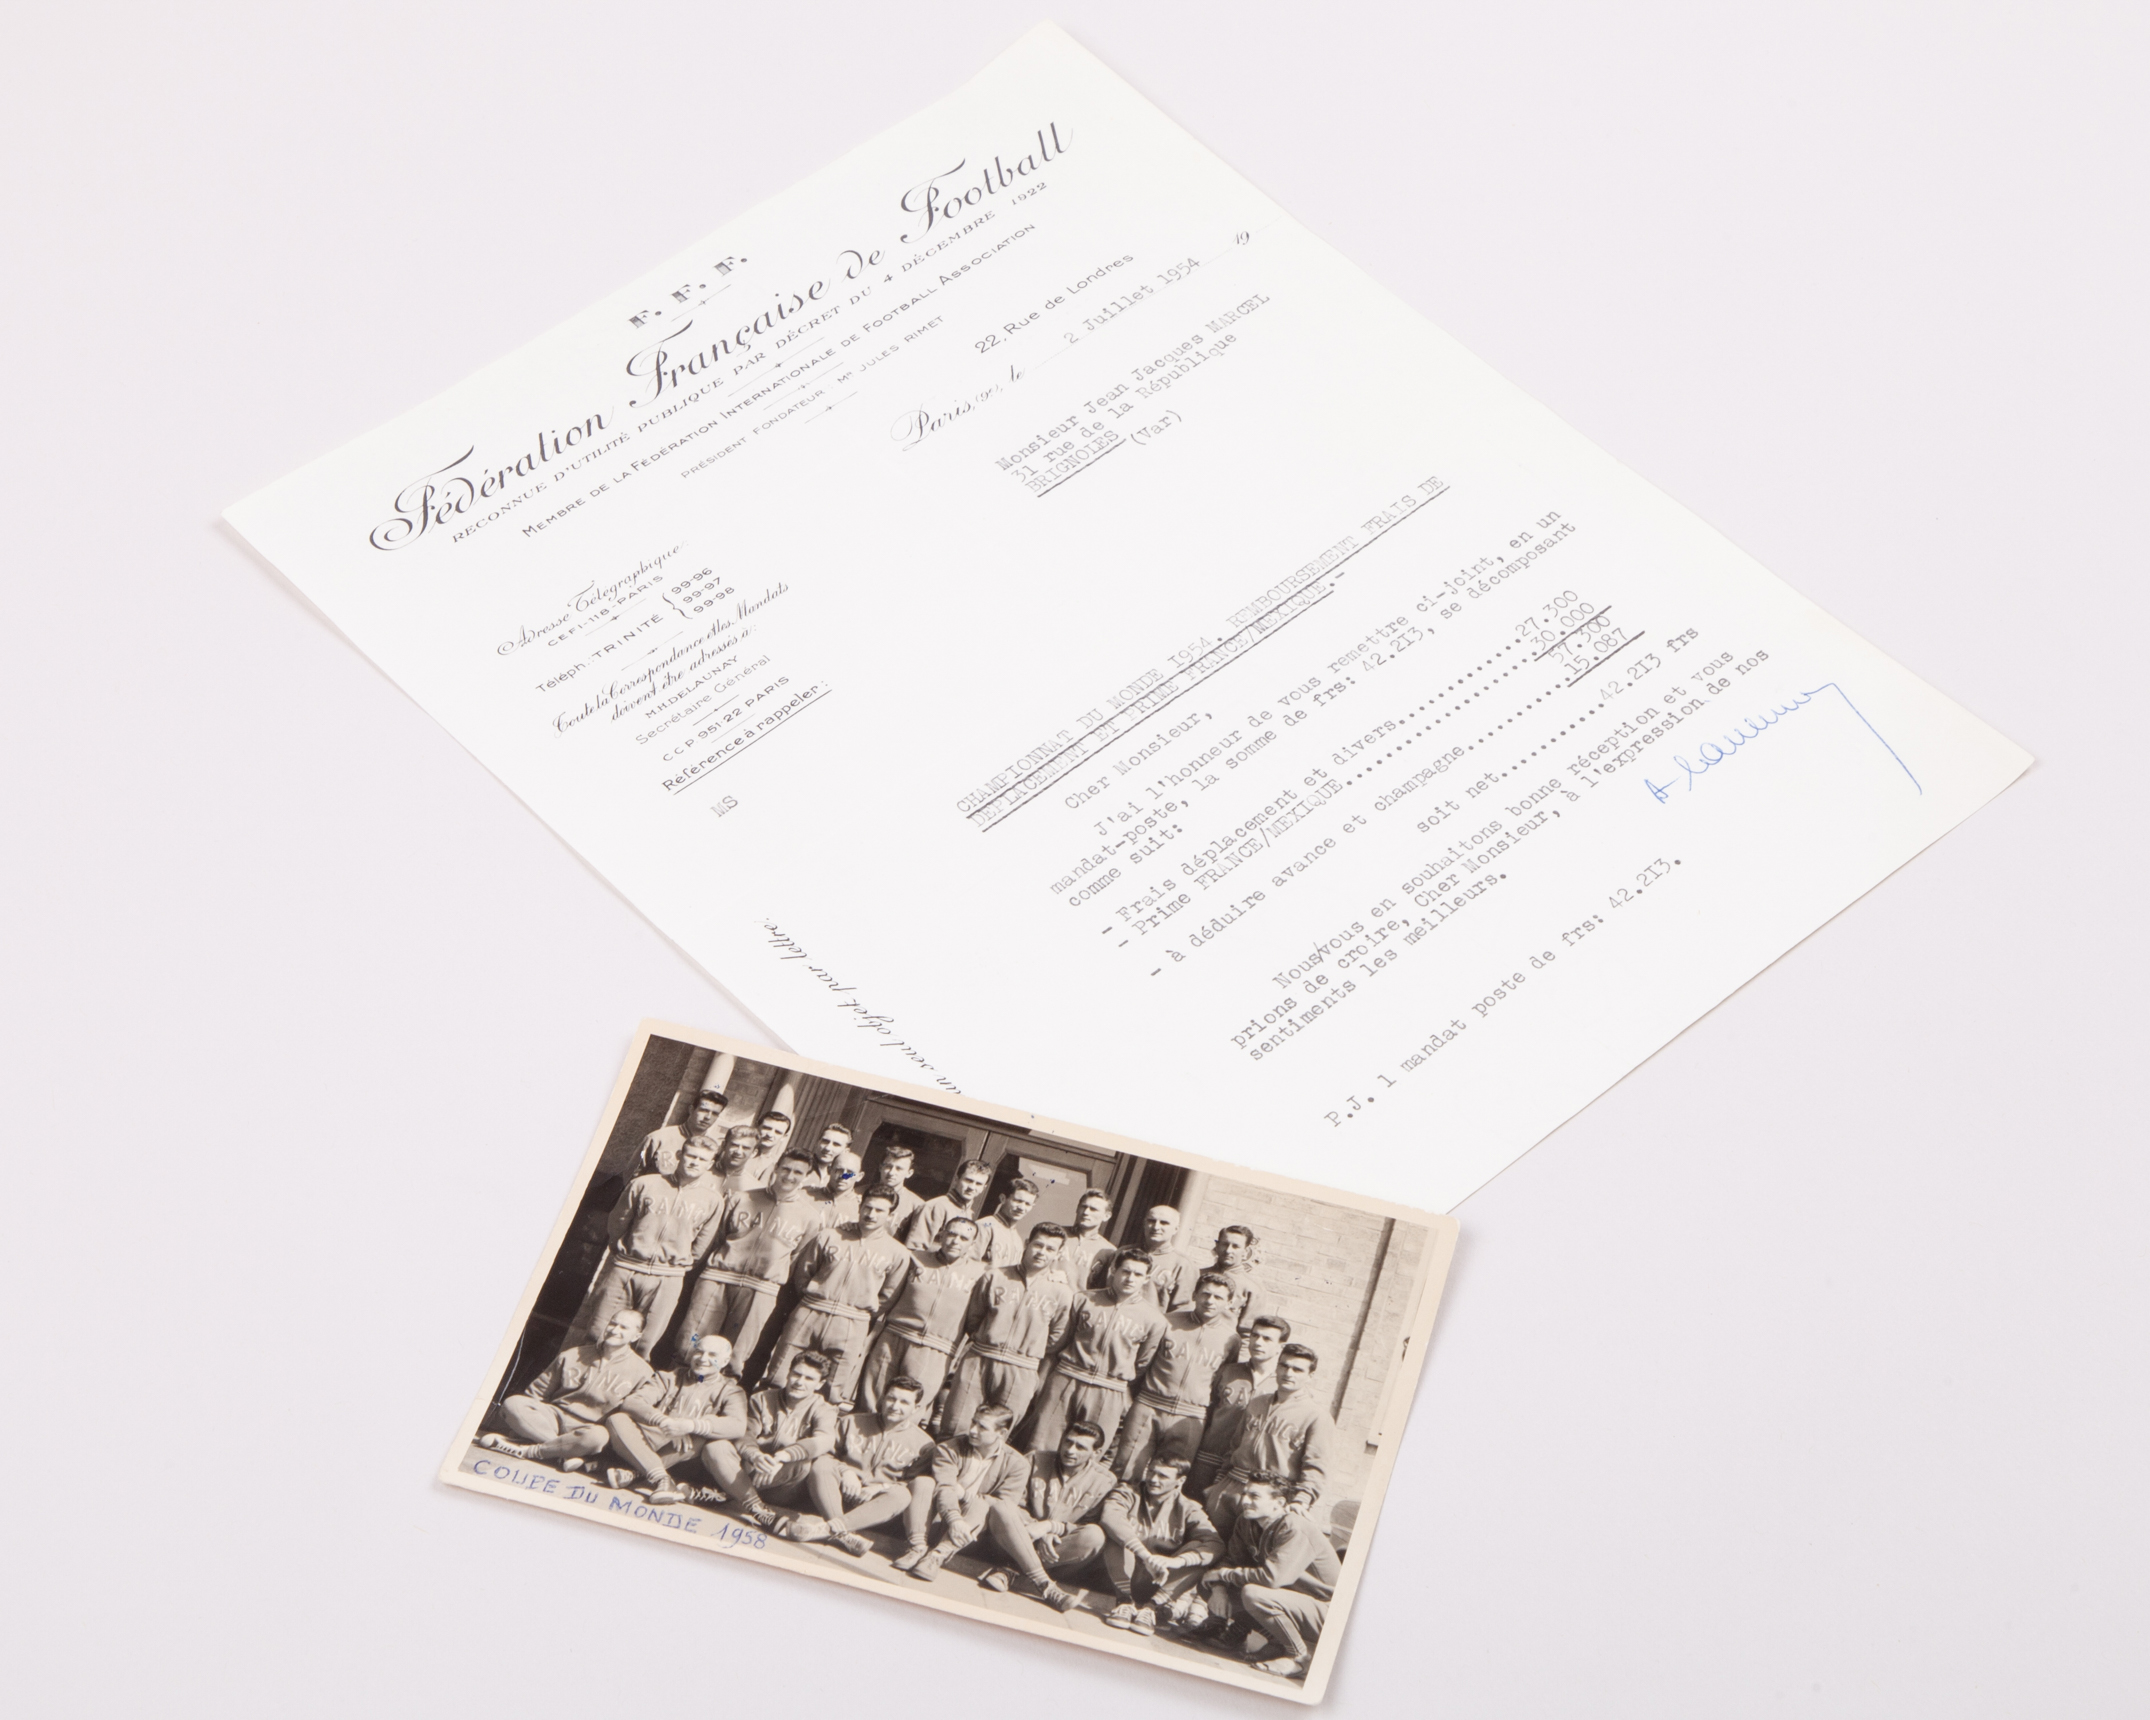 F. F. F.
Fédération Française de Football
RECONNUE D'UTILITÉ PUBLIQUE PAR DÉCRET DU 4 DÉCEMBRE 1922
MEMBRE DE LA FÉDÉRATION INTERNATIONALE DE FOOTBALL ASSOCIATION
PRÉSIDENT FONDATEUR : Mr JULES RIMET
22, Rue de Londres
Paris, (9e), le 2 Juillet 1954 19
Monsieur Jean Jacques MARCEL
31 rue de la République
BRIGNOLES (Var)
Adresse Télégraphique:
CEFI-118-PARIS
Téléph.: TRINITÉ { 99-96
99-97
99-98
Toute la Correspondance et les Mandats
doivent être adressés à:
M.H.DELAUNAY
Secrétaire Général
C C P 951-22 PARIS
Référence à rappeler :
MS
CHAMPIONNAT DU MONDE 1954. REMBOURSEMENT FRAIS DE
DEPLACEMENT ET PRIME FRANCE/MEXIQUE.-
Cher Monsieur,
J'ai l'honneur de vous remettre ci-joint, en un
mandat-poste, la somme de frs: 42.2I3, se décomposant
comme suit:
- Frais déplacement et divers..............27.300
- Prime FRANCE/MEXIQUE.....................30.000
57.300
- à déduire avance et champagne............15.087
soit net.............42.2I3 frs
Nous/vous en souhaitons bonne réception et vous
prions de croire, Cher Monsieur, à l'expression de nos
sentiments les meilleurs.
P.J. 1 mandat poste de frs: 42.2I3.
un seul objet par lettre.
RANCE
RANC
RANCE
RANC
RANC
RANC
RANC
RANC
COUPE DU MONDE 1958